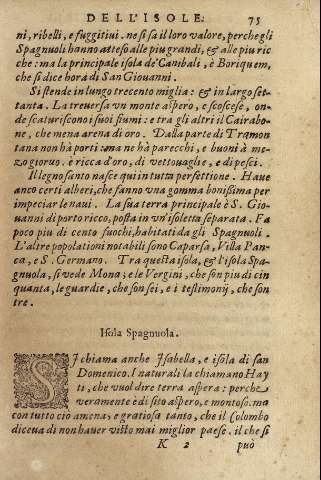 DELL'ISOLE. 75
ni, ribelli, e fuggitiui. ne si sa il loro valore, perche gli
Spagnuoli hanno atteso alle piu grandi, & alle piu ric
che: ma la principale isola de' Canibali, è Boriquem,
che si dice hora di San Giouanni.
Si stende in lungo trecento miglia: & in largo set-
tanta. La treuersa vn monte aspero, e scoscese, on-
de scaturiscono i suoi fiumi: e tra gli altri il Cairabo-
ne, che mena arena di oro. Dalla parte di Tramon
tana non hà porti: ma ne hà parecchi, e buoni à me-
zogiorno. è ricca d'oro, di vettouaglie, e di pesci.
Il legno santo nasce qui in tutta perfettione. Haue
anco certi alberi, che fanno vna gomma bonissima per
impeciar le naui. La sua terra principale è S. Gio-
uanni di porto ricco, posta in vn'isoletta separata. Fa
poco piu di cento fuochi, habitati da gli Spagnuoli.
L'altre popolationi notabili sono Caparsa, Villa Pan-
ca, e S. Germano. Tra questa isola, & l'isola Spa-
gnuola, si vede Mona; e le Vergini, che son piu di cin
quanta, le guardie, che son sei, e i testimonij, che son
tre.
Isola Spagnuola.
SI chiama anche Isabella, e isola di san
Domenico. I naturali la chiamano Hay
ti, che vuol dire terra aspera: perche
veramente è di sito aspero, e montoso. ma
con tutto ciò amena, e gratiosa tanto, che il Colombo
diceua di non hauer visto mai miglior paese. il che si
K 2 può